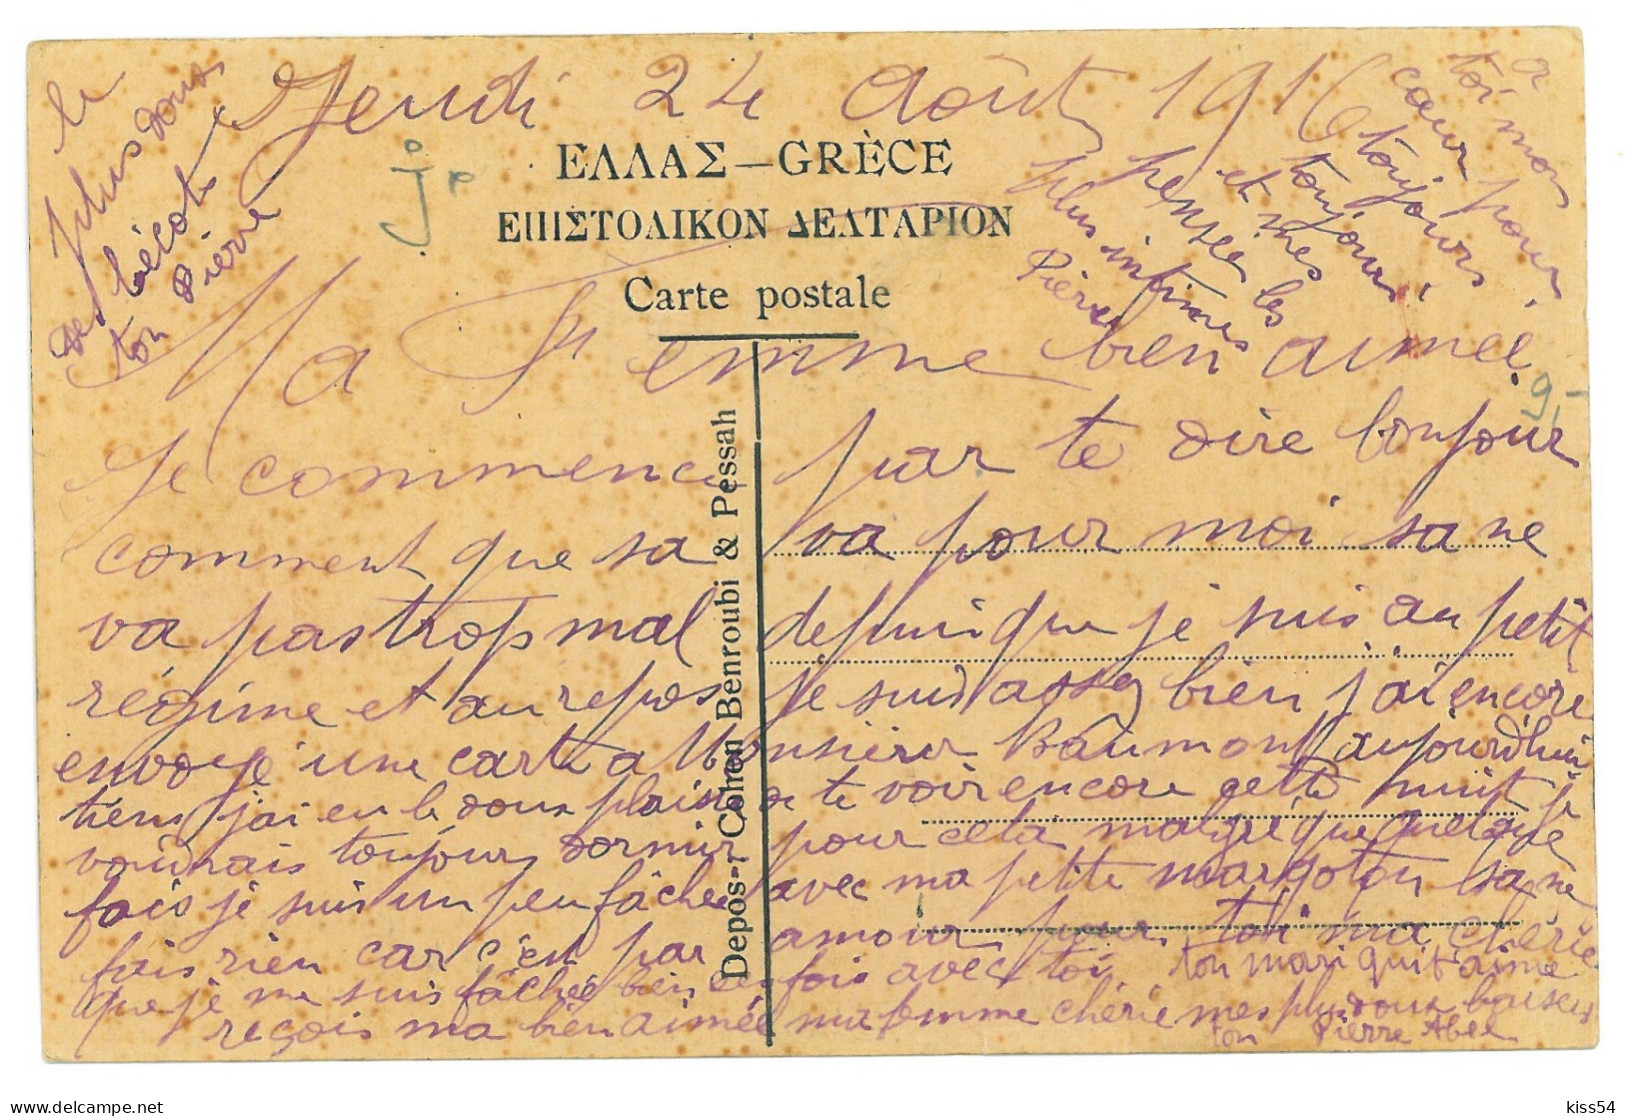 Jeudi 24 Août 1916
ΕΛΛΑΣ — GRÈCE
ΕΠΙΣΤΟΛΙΚΟΝ ΔΕΛΤΑΡΙΟΝ
Carte postale
Ma Femme bien aimée.
Je commence par te dire bonjour
comment que sa va pour moi sa ne
va pas trop mal depuis que je suis au petit
régime et au repos je suis assez bien j'ai encore
envoyé une carte a Monsieur Baumont aujourd'hui
tiens j'ai eu le doux plaisir de te voir encore cette nuit je
voudrais toujours dormir pour cela malgré que quelque
fois je suis un peu fâchée avec ma petite margoton sa ne
fais rien car c'est par amour pour toi ma chérie
que je me suis fâchée bien des fois avec toi ton mari qui t'aime
reçois ma bien aimée ma femme chérie mes plus doux baisers
ton Pierre Abel
le
plus doux
des bécots
ton Pierre
a
toi mon
cœur pour
toujours
toujours
et mes
pensées les
plus intimes
Pierre
jr
9,-
Depos-r Cohen Benroubi & Pessah
kiss54